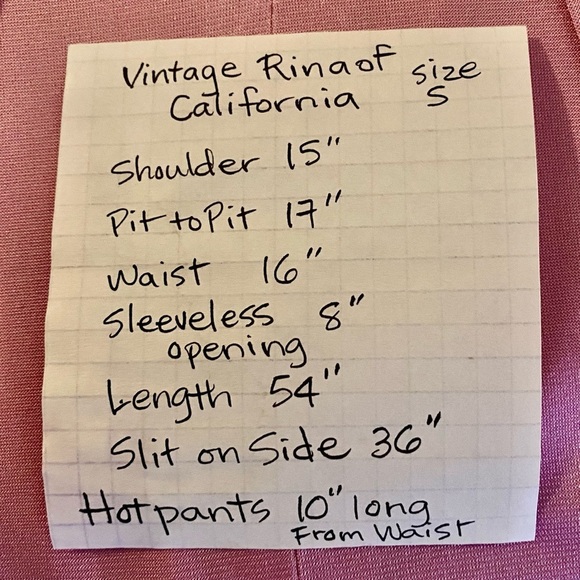 Vintage Rina of size
California S
Shoulder 15"
Pit to Pit 17"
Waist 16"
Sleeveless 8"
opening
Length 54"
Slit on Side 36"
Hotpants 10" long
From Waist